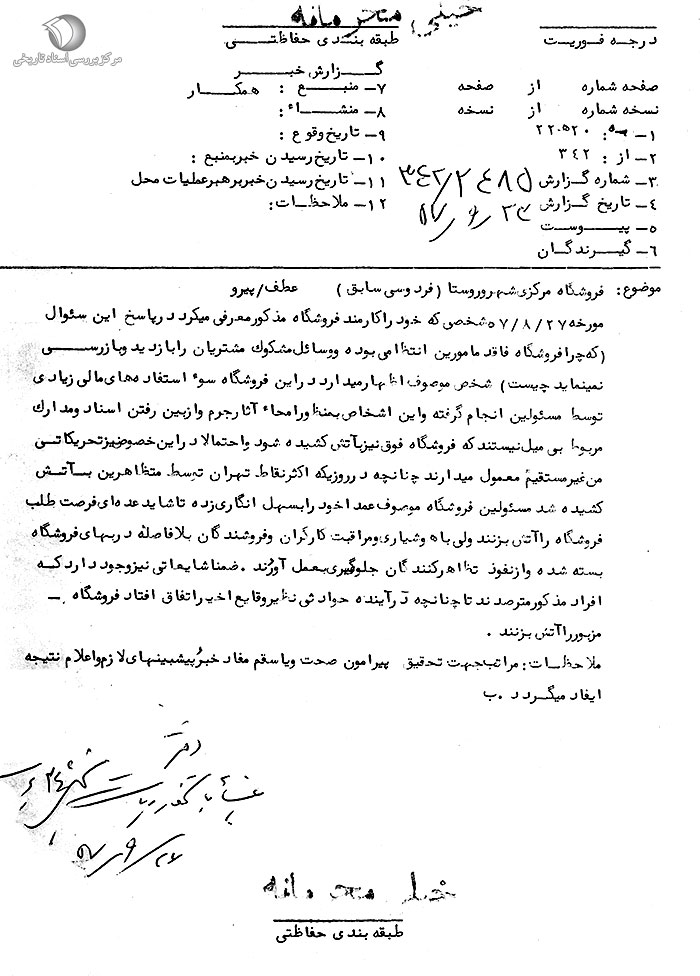 خیلی محرمانه
درجه فوریت
طبقه بندی حفاظتی
مرکز بررسی اسناد تاریخی
گزارش خبر
صفحه شماره از صفحه
نسخه شماره از نسخه
۱- به: ۲۲۰۵۲۰
۲- از: ۳۴۲
۳- شماره گزارش ۳۴۲/۲۴۸۵
۴- تاریخ گزارش
۵- پیوست
۶- گیرندگان
۷- منبع: همکار
۸- منشاء:
۹- تاریخ وقوع:
۱۰- تاریخ رسیدن خبر بمنبع:
۱۱- تاریخ رسیدن خبر برهبر عملیات محل
۱۲- ملاحظات:
موضوع: فروشگاه مرکزی شهر و روستا (فردوسی سابق) عطف/پیرو
مورخه ۵۷/۸/۲۷ شخصی که خود را کارمند فروشگاه مذکور معرفی میکرد در پاسخ این سئوال
(که چرا فروشگاه فاقد مامورین انتظامی بوده و وسائل مشکوک مشتریان را بازدید و بازرسی
نمینماید چیست) شخص موصوف اظهار میدارد در این فروشگاه سوء استفاده های مالی زیادی
توسط مسئولین انجام گرفته و این اشخاص بمنظور امحاء آثار جرم و از بین رفتن اسناد و مدارک
مربوط بی میل نیستند که فروشگاه فوق نیز بآتش کشیده شود و احتمالا در این خصوص نیز تحریکاتی
من غیر مستقیم معمول میدارند چنانچه در روزیکه اکثر نقاط تهران توسط متظاهرین بآتش
کشیده شد مسئولین فروشگاه موصوف عمدا خود را بسهل انگاری زده تا شاید عده ای فرصت طلب
فروشگاه را آتش بزنند ولی با هوشیاری و مراقبت کارگران و فروشندگان بلافاصله دربهای فروشگاه
بسته شده و از نفوذ تظاهرکنندگان جلوگیری بعمل آوردند. ضمنا شایعاتی نیز وجود دارد که
افراد مذکور مترصدند تا چنانچه در آینده حوادثی نظیر وقایع اخیر اتفاق افتاد فروشگاه -
مزبور را آتش بزنند.
ملاحظات: مراتب جهت تحقیق پیرامون صحت و یا سقم مفاد خبر و پیشبینهای لازم و اعلام نتیجه
ایفاد میگردد. ب
خیلی محرمانه
طبقه بندی حفاظتی